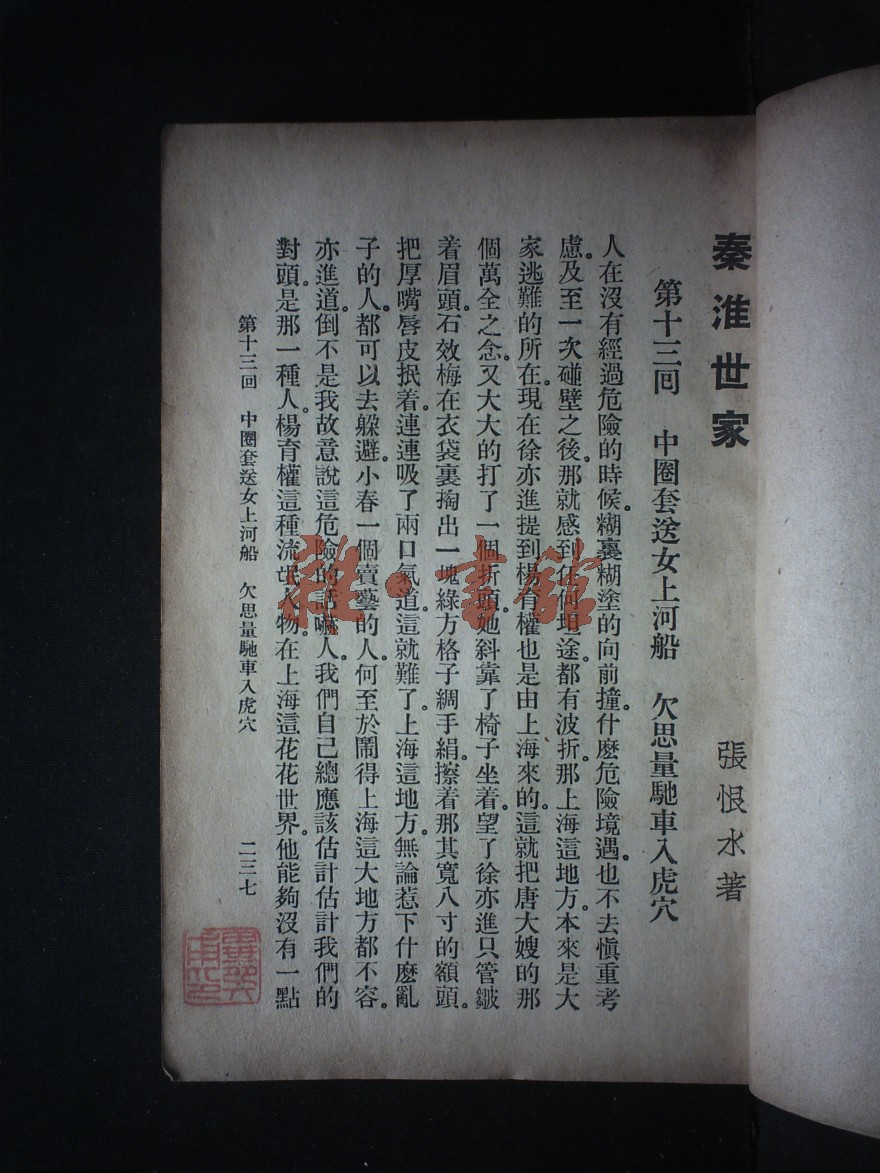 秦淮世家
張恨水著
第十三回　中圈套送女上河船　欠思量馳車入虎穴
人在沒有經過危險的時候。糊裏糊塗的向前撞。什麽危險境遇。也不去愼重考
慮。及至一次碰壁之後。那就感到任何坦途。都有波折。那上海這地方。本來是大
家逃難的所在。現在徐亦進提到楊育權也是由上海來的。這就把唐大嫂的那
個萬全之念。又大大的打了一個折頭。她斜靠了椅子坐着。望了徐亦進只管皺
着眉頭。石效梅在衣袋裏掏出一塊綠方格子綢手絹。擦着那其寬八寸的額頭。
把厚嘴唇皮抿着。連連吸了兩口氣道。這就難了。上海這地方。無論惹下什麽亂
子的人。都可以去躲避。小春一個賣藝的人。何至於鬧得上海這大地方都不容。
亦進道。倒不是我故意說這危險的話嚇人。我們自己總應該估計估計我們的
對頭。是那一種人。楊育權這種流氓人物。在上海這花花世界。他能夠沒有一點
第十三回　中圈套送女上河船　欠思量馳車入虎穴　二三七
雜·書館